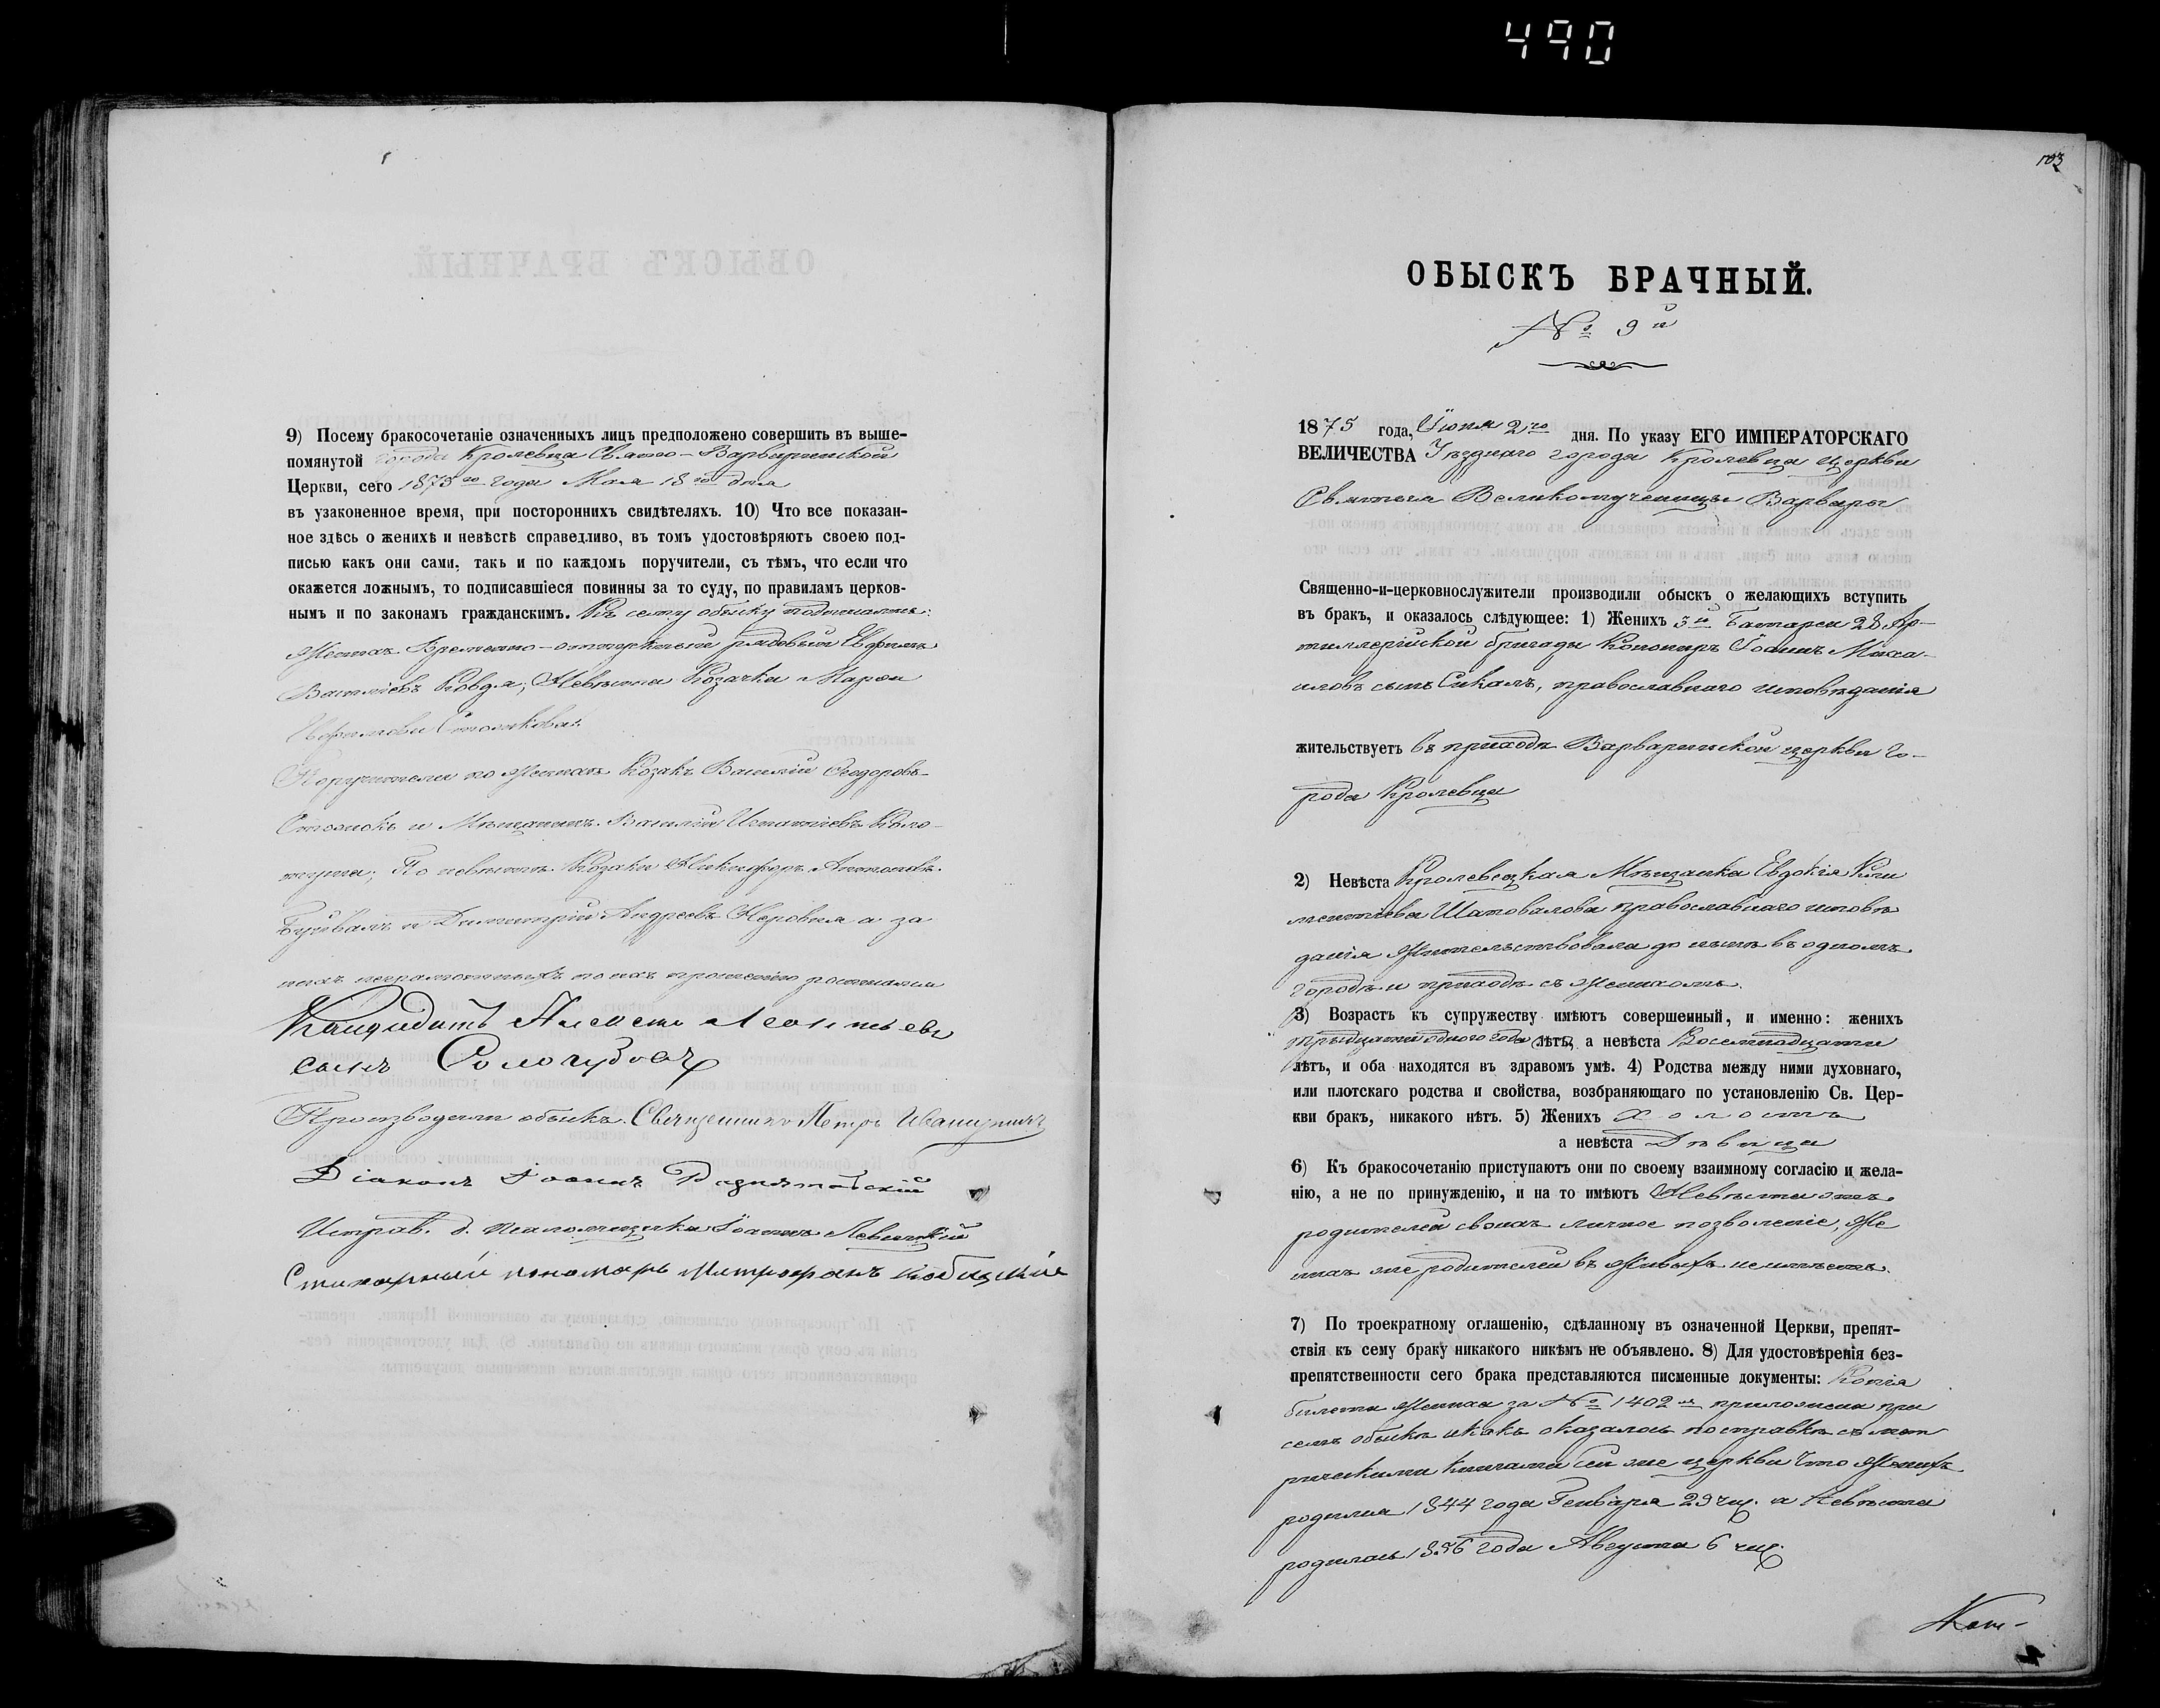 490
9) Посему бракосочетаніе означенныхъ лицъ предположено совершить въ выше-
помянутой города Кролевца Свято-Варваринской
Церкви, сего 1875го года Мая 18го дня
въ узаконенное время, при постороннихъ свидѣтеляхъ. 10) Что все показан-
ное здѣсь о женихѣ и невѣстѣ справедливо, въ томъ удостовѣряютъ своею под-
писью какъ они сами, такъ и по каждомъ поручители, съ тѣмъ, что если что
окажется ложнымъ, то подписавшіеся повинны за то суду, по правиламъ церков-
нымъ и по законамъ гражданскимъ. Къ сему обыску подписались:
Женихъ Временно-отпускный рядовый Евфимъ
Василіевъ Ковдя; Невѣста Козачка Марѳа
Поручители по женихѣ Козакъ Василій Ѳеодоровъ
и Мѣщанинъ Василій
По невѣстѣ Козаки Никифоръ Антоновъ
и Димитрій Андреевъ а за
ихъ неграмотныхъ по ихъ прошенію росписался
Кандидатъ Алексѣй Леонтьевъ
сынъ Сологубовъ
Производили обыскъ: Священникъ Петръ
Діаконъ Іоаннъ
Исправ. д. псаломщика Іоаннъ Левицкій
Стихарный пономарь Митрофанъ
103
ОБЫСКЪ БРАЧНЫЙ.
№ 9й
1875 года, Іюня 2го дня. По указу ЕГО ИМПЕРАТОРСКАГО
ВЕЛИЧЕСТВА Уѣзднаго города Кролевца церкви
Святыя Великомученицы Варвары
Священно-и-церковнослужители производили обыскъ о желающихъ вступить
въ бракъ, и оказалось слѣдующее: 1) Женихъ 3й Батареи 28 Ар-
тиллерійской бригады Канониръ Іоаннъ Миха-
иловъ сынъ Сикалъ, православнаго исповѣданія
жительствуетъ въ приходѣ Варваринской церкви го-
рода Кролевца
2) Невѣста Кролевецкая Мѣщанка Евдокія Кли
ментіева Шаповалова православнаго исповѣ
данія жительствовала до нынѣ въ одномъ
городѣ и приходѣ съ женихомъ.
3) Возрастъ къ супружеству имѣютъ совершенный, и именно: женихъ
тридцати одного года лѣтъ, а невѣста Восемнадцати
лѣтъ, и оба находятся въ здравомъ умѣ. 4) Родства между ними духовнаго,
или плотскаго родства и свойства, возбраняющаго по установленію Св. Цер-
кви бракъ, никакого нѣтъ. 5) Женихъ холостъ
а невѣста Дѣвица
6) Къ бракосочетанію приступаютъ они по своему взаимному согласію и жела-
нію, а не по принужденію, и на то имѣютъ Невѣста отъ
родителей своихъ личное позволеніе, Же
нихъ же родителей въ живыхъ неимѣетъ.
7) По троекратному оглашенію, сдѣланному въ означенной Церкви, препят-
ствія къ сему браку никакого никѣмъ не объявлено. 8) Для удостовѣренія без-
препятственности сего брака представляются писменные документы: Копія
билета жениха за № 1402м приложена при
семъ обыскѣ и какъ оказалось по справкѣ съ мет
рическими книгами сей же церкви что женихъ
родился 1844 года Генваря 29 чи. а Невѣста
родилась 1856 года Августа 6 чи.